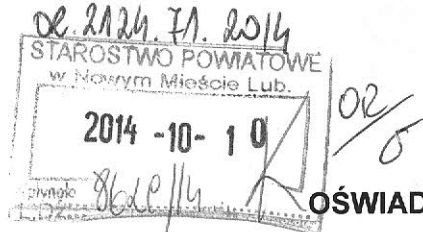 OR. 2124. 71. 2014
STAROSTWO POWIATOWE
w Nowym Mieście Lub.
2014 -10- 10
OR
OŚWIAD